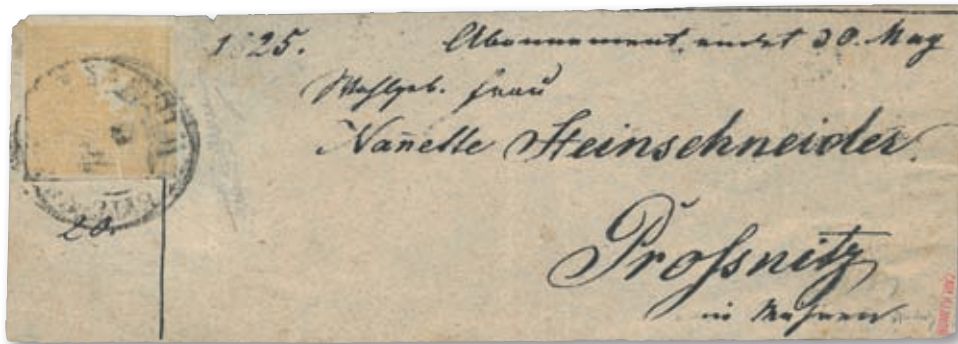 1825.
Abonnement endet 30. May
Wohlgeb. Frau
Nan̄ette Steinschneider.
Prossnitz
in Mähren
20.